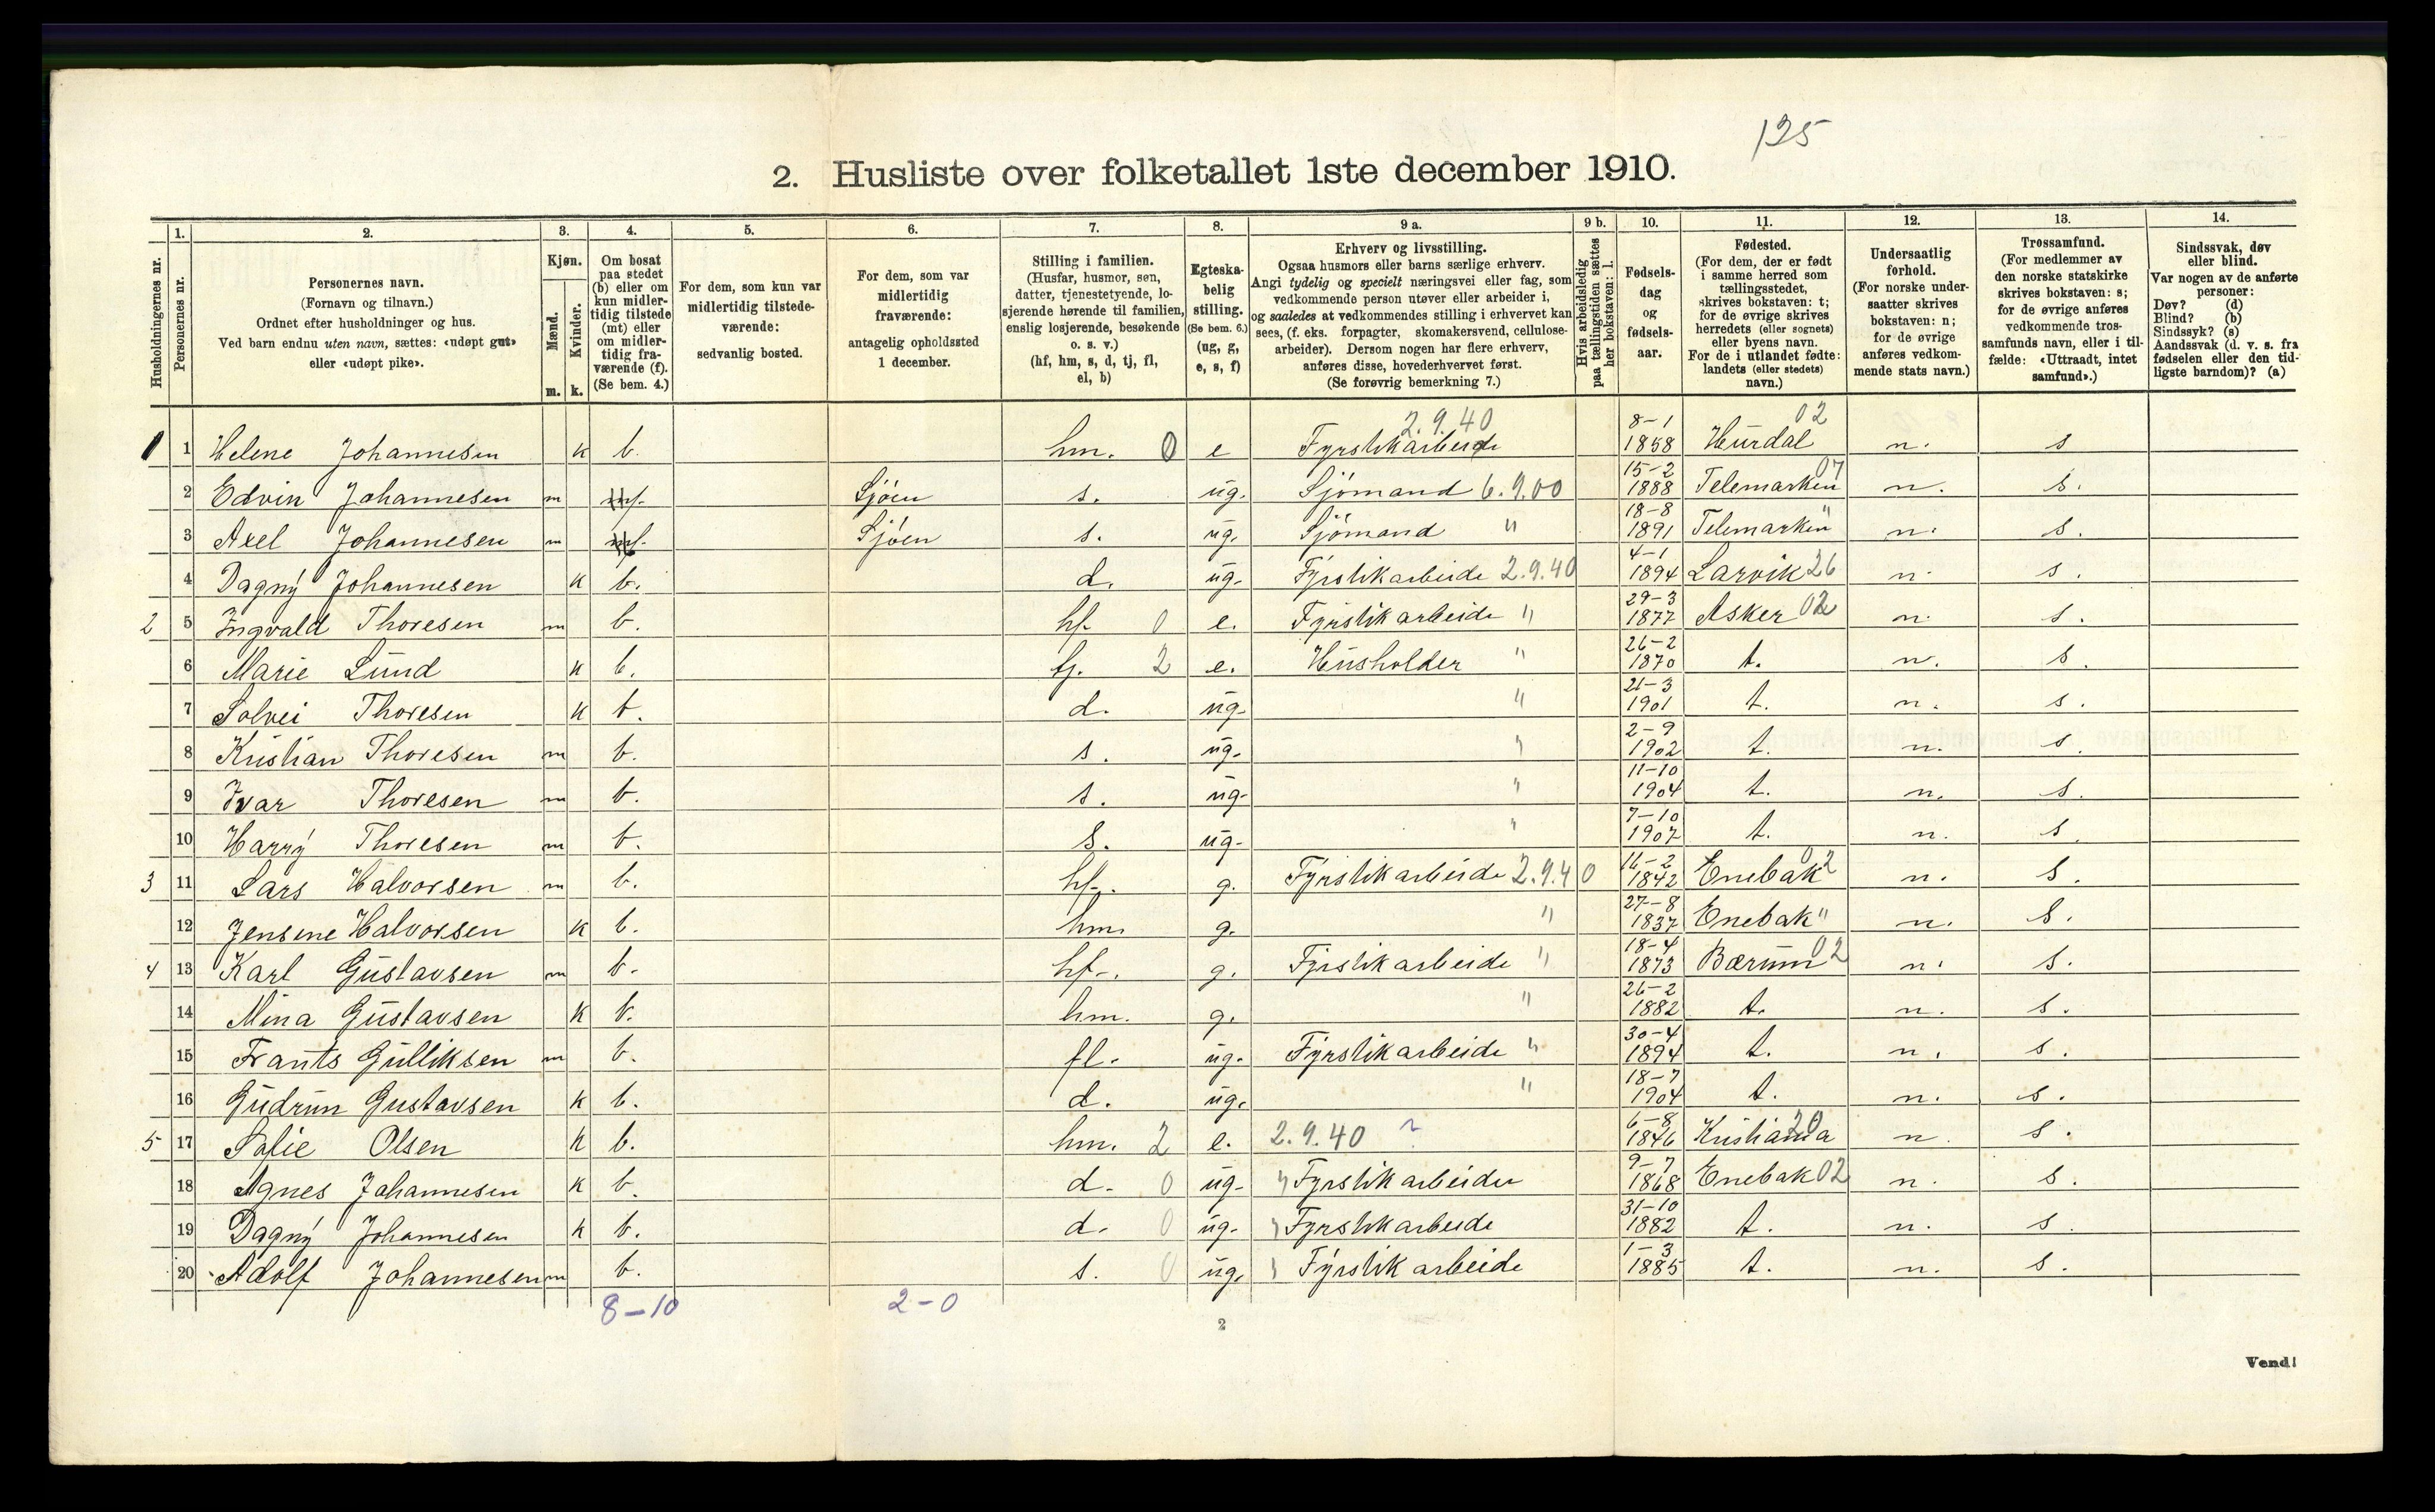 125
2. Husliste over folketallet 1ste december 1910.
Husholdningernes nr.
1. Personernes nr.
2. Personernes navn.
(Fornavn og tilnavn.)
Ordnet efter husholdninger og hus.
Ved barn endnu uten navn, sættes: «udøpt gut»
eller «udøpt pike».
3. Kjøn.
Mænd. m.
Kvinder. k.
4. Om bosat
paa stedet
(b) eller om
kun midler-
tidig tilstede
(mt) eller
om midler-
tidig fra-
værende (f).
(Se bem. 4.)
5. For dem, som kun var
midlertidig tilstede-
værende:
sedvanlig bosted.
6. For dem, som var
midlertidig
fraværende:
antagelig opholdssted
1 december.
7. Stilling i familien.
(Husfar, husmor, søn,
datter, tjenestetyende, lo-
sjerende hørende til familien,
enslig losjerende, besøkende
o. s. v.)
(hf, hm, s, d, tj, fl,
el, b)
8. Egteska-
belig
stilling.
(Se bem. 6.)
(ug, g,
e, s, f)
9 a. Erhverv og livsstilling.
Ogsaa husmors eller barns særlige erhverv.
Angi tydelig og specielt næringsvei eller fag, som
vedkommende person utøver eller arbeider i,
og saaledes at vedkommendes stilling i erhvervet kan
sees, (f. eks. forpagter, skomakersvend, cellulose-
arbeider). Dersom nogen har flere erhverv,
anføres disse, hovederhvervet først.
(Se forøvrig bemerkning 7.)
9 b. Hvis arbeidsledig
paa tællingstiden sættes
her bokstaven: l.
10. Fødsels-
dag
og
fødsels-
aar.
11. Fødested.
(For dem, der er født
i samme herred som
tællingsstedet,
skrives bokstaven: t;
for de øvrige skrives
herredets (eller sognets)
eller byens navn.
For de i utlandet fødte:
landets (eller stedets)
navn.)
12. Undersaatlig
forhold.
(For norske under-
saatter skrives
bokstaven: n;
for de øvrige
anføres vedkom-
mende stats navn.)
13. Trossamfund.
(For medlemmer av
den norske statskirke
skrives bokstaven: s;
for de øvrige anføres
vedkommende tros-
samfunds navn, eller i til-
fælde: «Uttraadt, intet
samfund».)
14. Sindssvak, døv
eller blind.
Var nogen av de anførte
personer:
Døv? (d)
Blind? (b)
Sindssyk? (s)
Aandssvak (d. v. s. fra
fødselen eller den tid-
ligste barndom)? (a)
1 1 Helene Johannesen k b. hm. 0 e Fyrstikarbeide 2.9.40 8-1 1858 Hurdal 02 n. s
2 Edvin Johannesen m f. Sjøen s. ug. Sjømand 6.9.00 15-2 1888 Telemarken 07 n. s.
3 Axel Johannesen m f. Sjøen s. ug. Sjømand " 18-8 1891 Telemarken " n. s.
4 Dagny Johannesen k b. d. ug. Fyrstikarbeide 2.9.40 4-1 1894 Larvik 26 n. s.
2 5 Ingvald Thoresen m b. hf. 0 e. Fyrstikarbeide " 29-3 1877 Asker 02 n. s.
6 Marie Lund k b. tj. 2 e. Husholder " 26-2 1870 t. n. s.
7 Solvei Thoresen k b. d. ug. " 21-3 1901 t. n. s.
8 Kristian Thoresen m b. s. ug. " 2-9 1902 t. n. s.
9 Ivar Thoresen m b. s. ug. " 11-10 1904 t. n. s.
10 Harry Thoresen m b. s. ug. " 7-10 1907 t. n. s.
3 11 Lars Halvorsen m b. hf. g. Fyrstikarbeide 2.9.40 16-2 1842 Enebak 02 n. s.
12 Jensine Halvorsen k b. hm. g. " 27-8 1837 Enebak " n. s.
4 13 Karl Gustavsen m b. hf. g. Fyrstikarbeide " 18-4 1873 Bærum 02 n. s.
14 Mina Gustavsen k b. hm. g. " 26-2 1882 t. n. s.
15 Frants Gulliksen m b. fl. ug. Fyrstikarbeide " 30-4 1894 t. n. s.
16 Gudrun Gustavsen k b. d. ug. " 18-7 1904 t. n. s.
5 17 Sofie Olsen k b. hm. 2 e. 2.9.40 ? 6-8 1846 Kristiania 20 n. s.
18 Agnes Johannesen k b. d. 0 ug. " Fyrstikarbeider 9-7 1868 Enebak 02 n. s.
19 Dagny Johannesen k b. d. 0 ug. " Fyrstikarbeide 31-10 1882 t. n. s.
20 Adolf Johannesen m b. s. 0 ug. " Fyrstikarbeide 1-3 1885 t. n. s.
8-10 2-0
2
Vend!